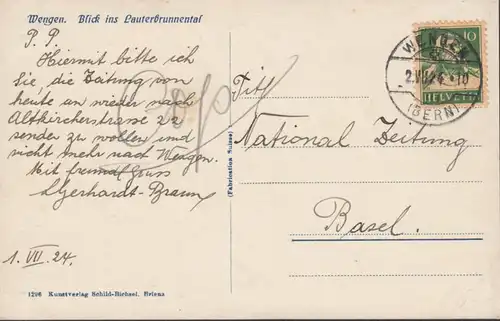 Wengen. Blick ins Lauterbrunnental
P. P.
Hiermit bitte ich
Sie, die Zeitung von
heute an wieder nach
Altkircherstrasse 22
senden zu wollen und
nicht mehr nach Wengen.
Mit freundl. Gruss
Gerhardt-Braun
1. VII. 24.
1296 Kunstverlag Schild-Bichsel, Brienz
(Fabrication Suisse)
Titl.
National Zeitung
Basel.
WENGEN
2.VII.24.-10
(BERN)
10
HELVETIA